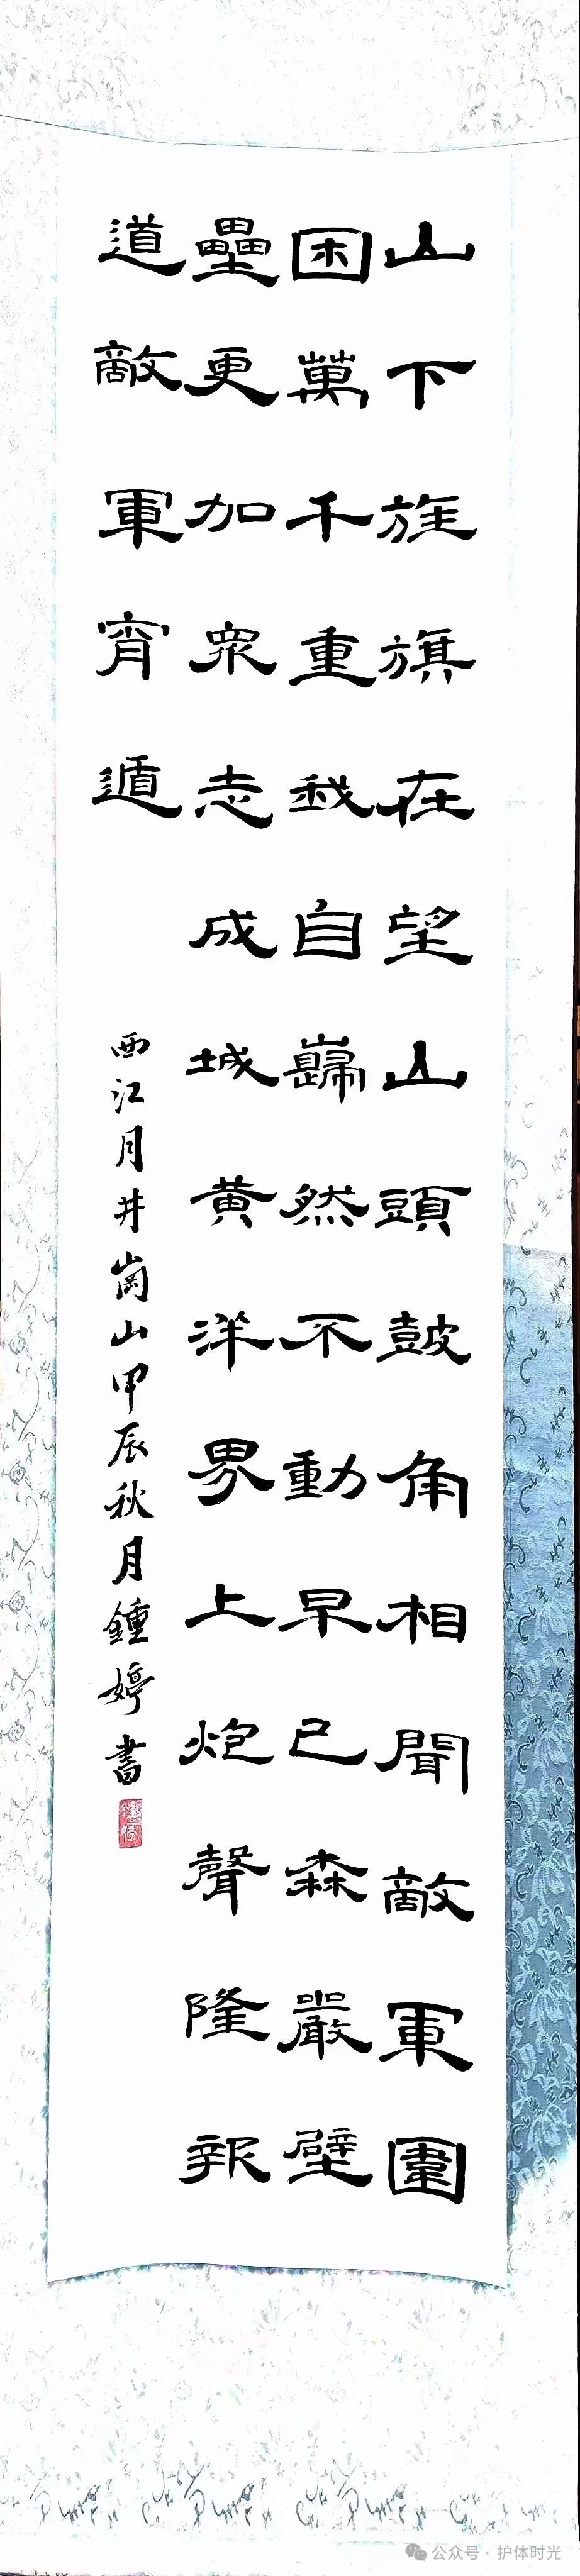 山下旌旗在望山頭鼓角相聞敵軍圍
困萬千重我自巋然不動早已森嚴壁
壘更加衆志成城黄洋界上炮聲隆報
道敵軍宵遁
西江月井崗山甲辰秋月鍾婷書
公众号 · 护体时光